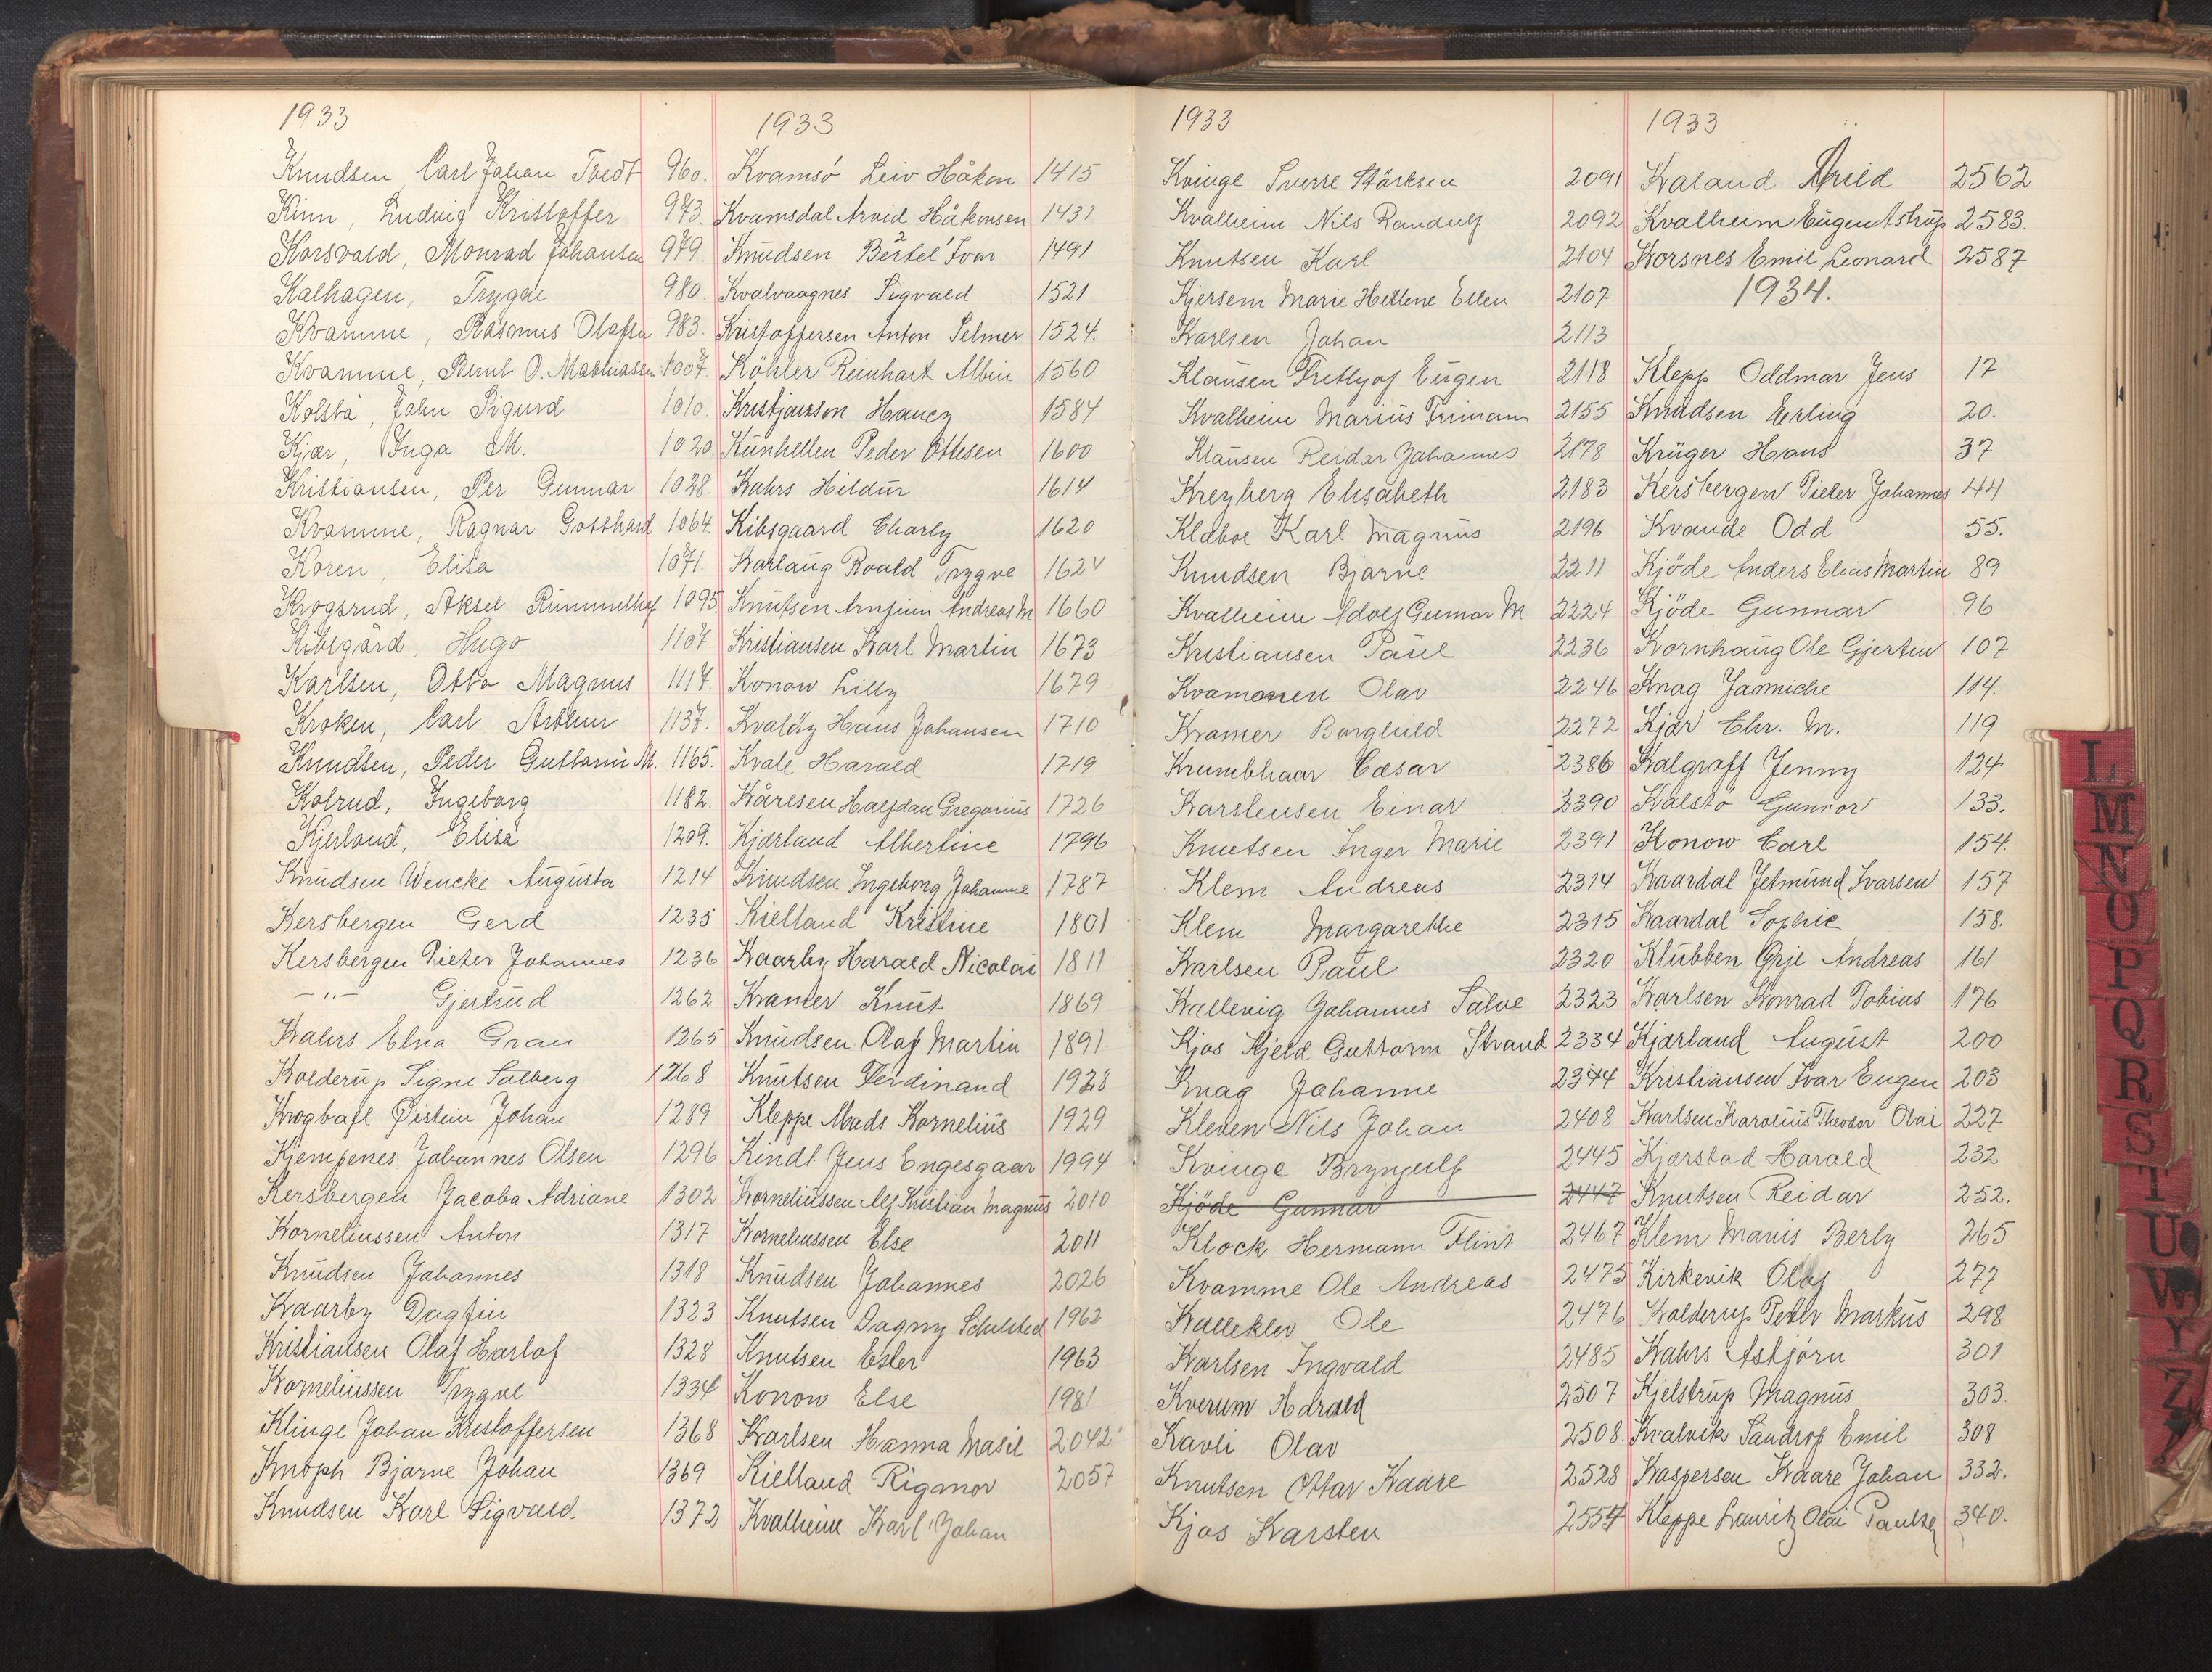 1933
Knudsen Carl Johan Tvedt 960.
Kinn, Ludvig Kristoffer 973.
Korsvold, Monrad Johansen 979.
Kalhagen, Trygve 980.
Kvamme, Rasmus Olafsen 983.
Kvamme, Bernt O. Mathiasen 1007.
Kolstå, John Sigurd 1010.
Kjær, Inga M. 1020.
Kristiansen, Per Gunnar 1028.
Kvamme, Ragnar Gotthard 1064.
Koren, Elisa 1071.
Krogsrud, Aksel 1095
Kibsgård, Hugo 1107.
Karlsen, Otto Magnus 1117.
Kroken, Carl Arthur 1137.
Knudsen, Peder Guttorm M. 1165.
Kolrud, Ingeborg 1182.
Kjerland, Elisa 1209.
Knudsen Wencke Augusta 1214
Kersbergen Gerd 1235
Kersbergen Pieter Johannes 1236
— " — Gjertrud 1262
Kahrs Elna Gran 1265
Kolderup Signe Solberg 1268
Øistein Johan 1289
Kjempenes Johannes Olsen 1296
Kersbergen Jacoba Adriane 1302
Korneliussen Anton 1317
Knudsen Johannes 1318
Kaarby Dagfin 1323
Kristiansen Olaf Harlof 1328
Korneliussen Trygve 1334
Klinge Johan Kristoffersen 1368
Knoph Bjarne Johan 1369
Knudsen Karl Sigvald 1372
1933
Kvamsö Leiv Håkon 1415
Kvamsdal Arvid Håkonsen 1431
Knudsen Bertel Ivar 1491
Kvalvaagnes Sigvald 1521
Kristoffersen Anton Selmer 1524.
Köhler Reinhart Albin 1560
Kristjansson 1584
Kunhellen Peder Ottesen 1600
Kahrs Hildur 1614
Kibsgaard Charly 1620
Karlaug Roald Trygve 1624
Knutsen Arnfinn Andreas M 1660
Kristiansen Karl Martin 1673
Konow Lilly 1679
Kvalöy Hans Johansen 1710
Kvale Harald 1719
Kåresen Halfdan Gregorius 1726
Kjærland Albertine 1796
Knudsen Ingeborg Johanne 1787
Kielland Kristine 1801
Kaarby Harald Nicolai 1811
Kramer Knut 1869
Knudsen Olaf Martin 1891.
Knutsen Ferdinand 1928
Kleppe Mads Kornelius 1929
Kindt Jens Engesgaar 1994
Korneliussen Alf Kristian Magnus 2010
Korneliussen Else 2011
Knudsen Johannes 2026
Knutsen Dagny 1962
Knutsen Ester 1963
Konow Else 1981
Karlsen Hanna Masil 2042
Kielland Rigmor 2057
Kvalheim Karl Johan
1933
Kvinge Sverre Störksen 2091
Kvalheim Nils Randulf 2092
Knutsen Karl 2104
Kjersem Marie Helene Ellen 2107
Karlsen Johan 2113
Klausen Frithjof Eugen 2118
Kvalheim Marius 2155
Klausen Reidar Johannes 2178
Kreyberg Elisabeth 2183
Klaboe Karl Magnus 2196
Knudsen Bjarne 2211
Kvalheim Adolf Gunnar M 2224
Kristiansen Paul 2236
Kvamonen Olav 2246
Kramer Borghild 2272
Krumbhaar Cæsar 2386
Karstensen Einar 2390
Knutsen Inger Marie 2391
Klem Andreas 2314
Klem Margarethe 2315
Karlsen Paul 2320
Kallevig Johannes Salve 2323
Kjos Kjeld Guttorm Strand 2334
Knag Johanne 2344
Kleven Nils Johan 2408
Kvinge Brynjulf 2445
Kjöde Gunnar 2447
Klock Hermann Flint 2467
Kvamme Ole Andreas 2475
Kalleklev Ole 2476
Karlsen Ingvald 2485
Kverum Harald 2507
Kavli Olav 2508.
Knutsen Ottar Kaare 2528
Kjos Karsten 2554
1933
Kaland Arild 2562
Kvalheim Eugen Astrup 2583.
Korsnes Emil Leonard 2587
1934.
Klepp Oddmar Jens 17
Knudsen Erling 20.
Krüger Hans 37
Kersbergen Pieter Johannes 44
Kvande Odd 55.
Kjöde Anders Elias Martin 89
Kjöde Gunnar 96
Kornhaug Ole Gjertin 107
Knag Janniche 114.
Kjær Chr. M. 119
Kalgraff Jenny 124
Kalstö Gunvor 133.
Konow Carl 154.
Kaardal Jetmund Ivarsen 157
Kaardal Sophie 158.
Klubben Andreas 161
Karlsen Konrad Tobias 176
Kjærland August 200
Kristiansen Ivar Eugen 203
Karlsen Karolius Theodor Olai 227
Kjærstad Harald 232
Knutsen Reidar 252.
Klem Manis Berly 265
Kirkevik Olaf 277
Kolderup Peter Markus 298
Kahrs Asbjörn 301
Kjelstrup Magnus 303.
Kvalvik Sandrof Emil 308
Kaspersen Kaare Johan 332.
Kleppe Lauritz Olai Paulsen 340.
L
M
N
O
P
Q
R
S
T
U
W
Y
Z